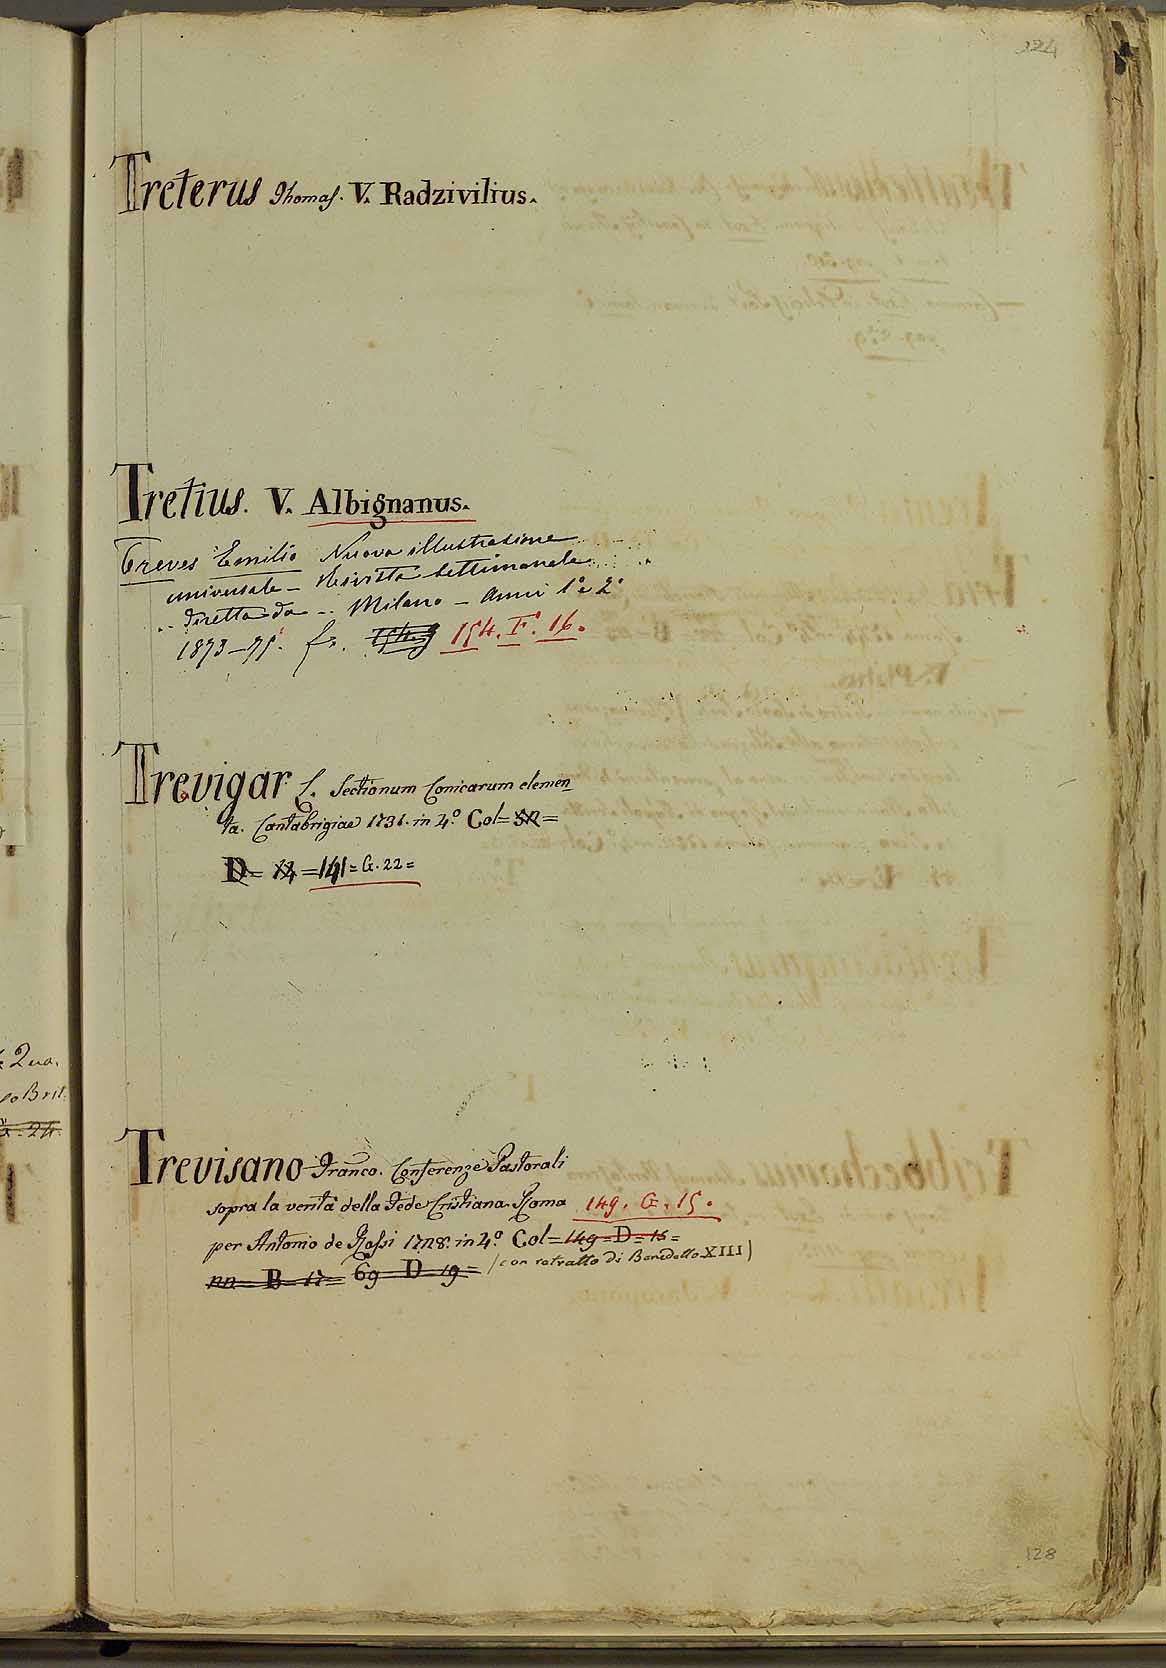 124
Treterus Thomas. V. Radzivilius.
Tretius. V. Albignanus.
Treves Emilio Nuova illustrazione
universale – Rivista settimanale
.. diretta da .. Milano – Anni 1° e 2°
1873–75. fo. 154. F. 16.
Trevigar L. Sectionum Conicarum elemen
ta. Cantabrigiae 1731. in 4.° Col= =
D= 14 =141= G. 22=
Trevisano Franco. Conferenze Pastorali
sopra la verità della Fede Cristiana. Roma 149. G. 15.
per Antonio de Rossi 1728. in 4.° Col= 149=D=15=
nn=B=17= 69=D=19= (con retratto di Benedetto XIII)
128